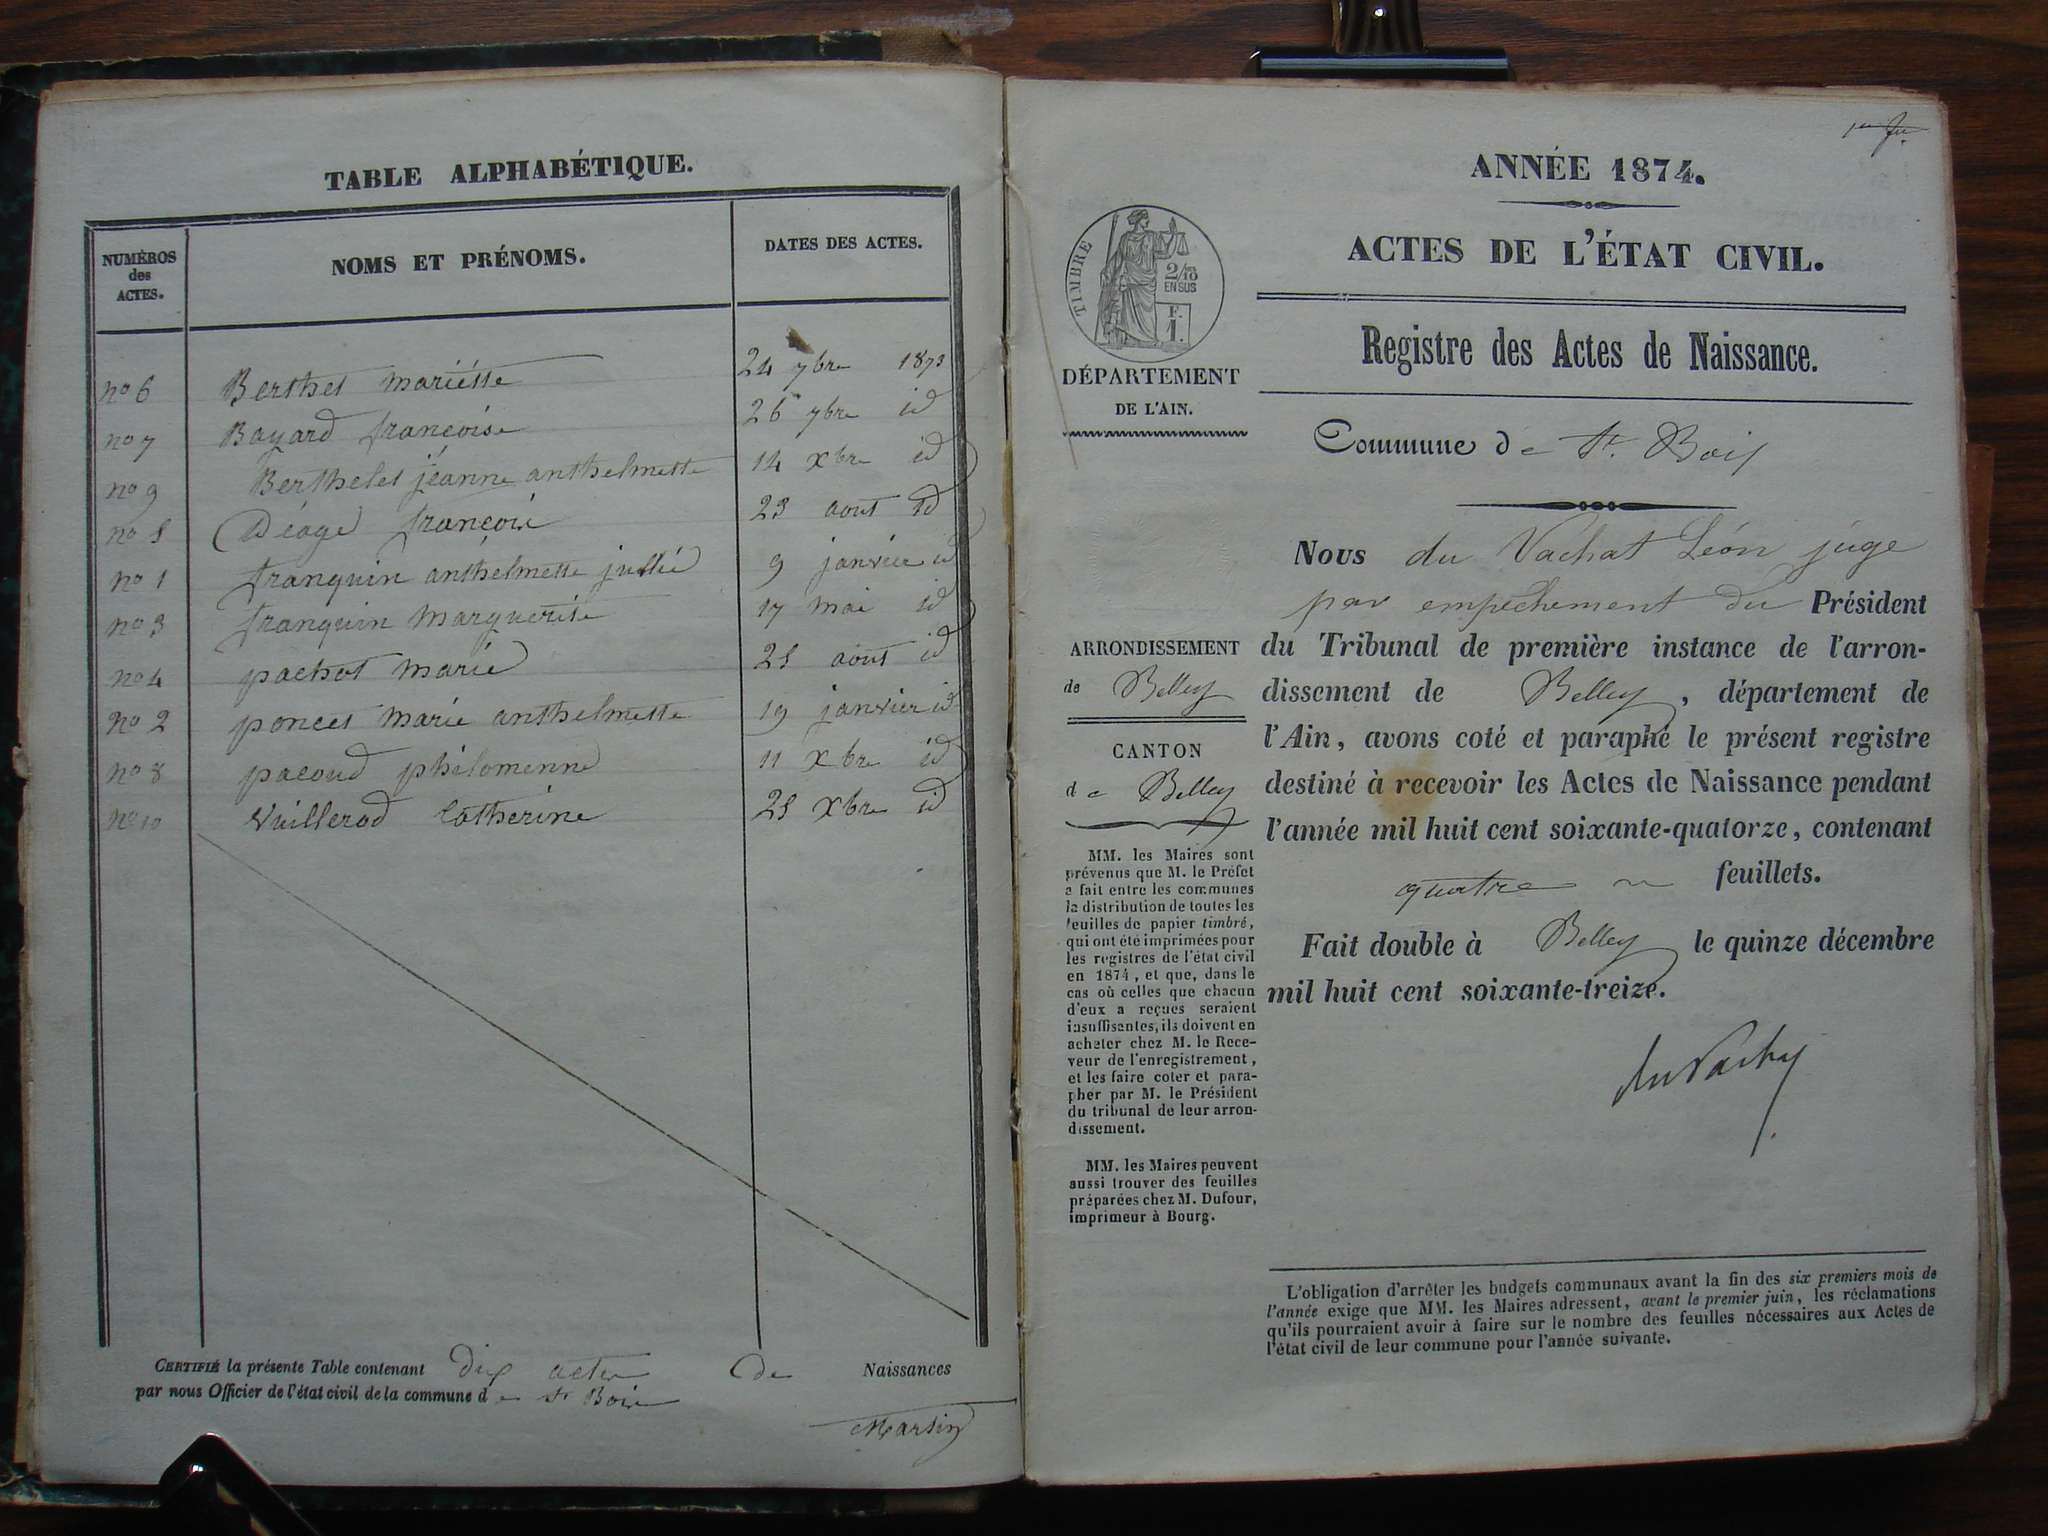 TABLE ALPHABÉTIQUE.
NUMÉROS des ACTES. NOMS ET PRÉNOMS. DATES DES ACTES.
no 6 Berthet mariette 24 7bre 1873
no 7 Bayard françoise 26 7bre id
no 9 Berthelet jéanne anthelmette 14 xbre id
no 5 Déage françois 23 aout id
no 1 franquin anthelmette jullie 9 janvier id
no 3 franquin marguerite 17 mai id
no 4 pachot marie 25 aout id
no 2 poncet marie anthelmette 19 janvier id
no 8 pacoud philomenne 11 xbre id
no 10 Vuillerod Catherine 25 xbre id
CERTIFIÉ la présente Table contenant dix actes de Naissances
par nous Officier de l'état civil de la commune de St Bois
Martin
ANNÉE 1874.
ACTES DE L'ÉTAT CIVIL.
Registre des Actes de Naissance.
TIMBRE
2/10
EN SUS
F.
1.
DÉPARTEMENT
DE L'AIN.
Commune de St. Bois
Nous du Vachat Léon juge
par empêchement du Président
du Tribunal de première instance de l'arron-
dissement de Belley, département de
l'Ain, avons coté et paraphé le présent registre
destiné à recevoir les Actes de Naissance pendant
l'année mil huit cent soixante-quatorze, contenant
quatre feuillets.
Fait double à Belley le quinze décembre
mil huit cent soixante-treize.
du Vachat
ARRONDISSEMENT
de Belley
CANTON
de Belley
MM. les Maires sont
prévenus que M. le Préfet
a fait entre les communes
la distribution de toutes les
feuilles de papier timbré,
qui ont été imprimées pour
les registres de l'état civil
en 1874, et que, dans le
cas où celles que chacun
d'eux a reçues seraient
insuffisantes, ils doivent en
acheter chez M. le Rece-
veur de l'enregistrement,
et les faire coter et para-
pher par M. le Président
du tribunal de leur arron-
dissement.
MM. les Maires peuvent
aussi trouver des feuilles
préparées chez M. Dufour,
imprimeur à Bourg.
L'obligation d'arrêter les budgets communaux avant la fin des six premiers mois de
l'année exige que MM. les Maires adressent, avant le premier juin, les réclamations
qu'ils pourraient avoir à faire sur le nombre des feuilles nécessaires aux Actes de
l'état civil de leur commune pour l'année suivante.